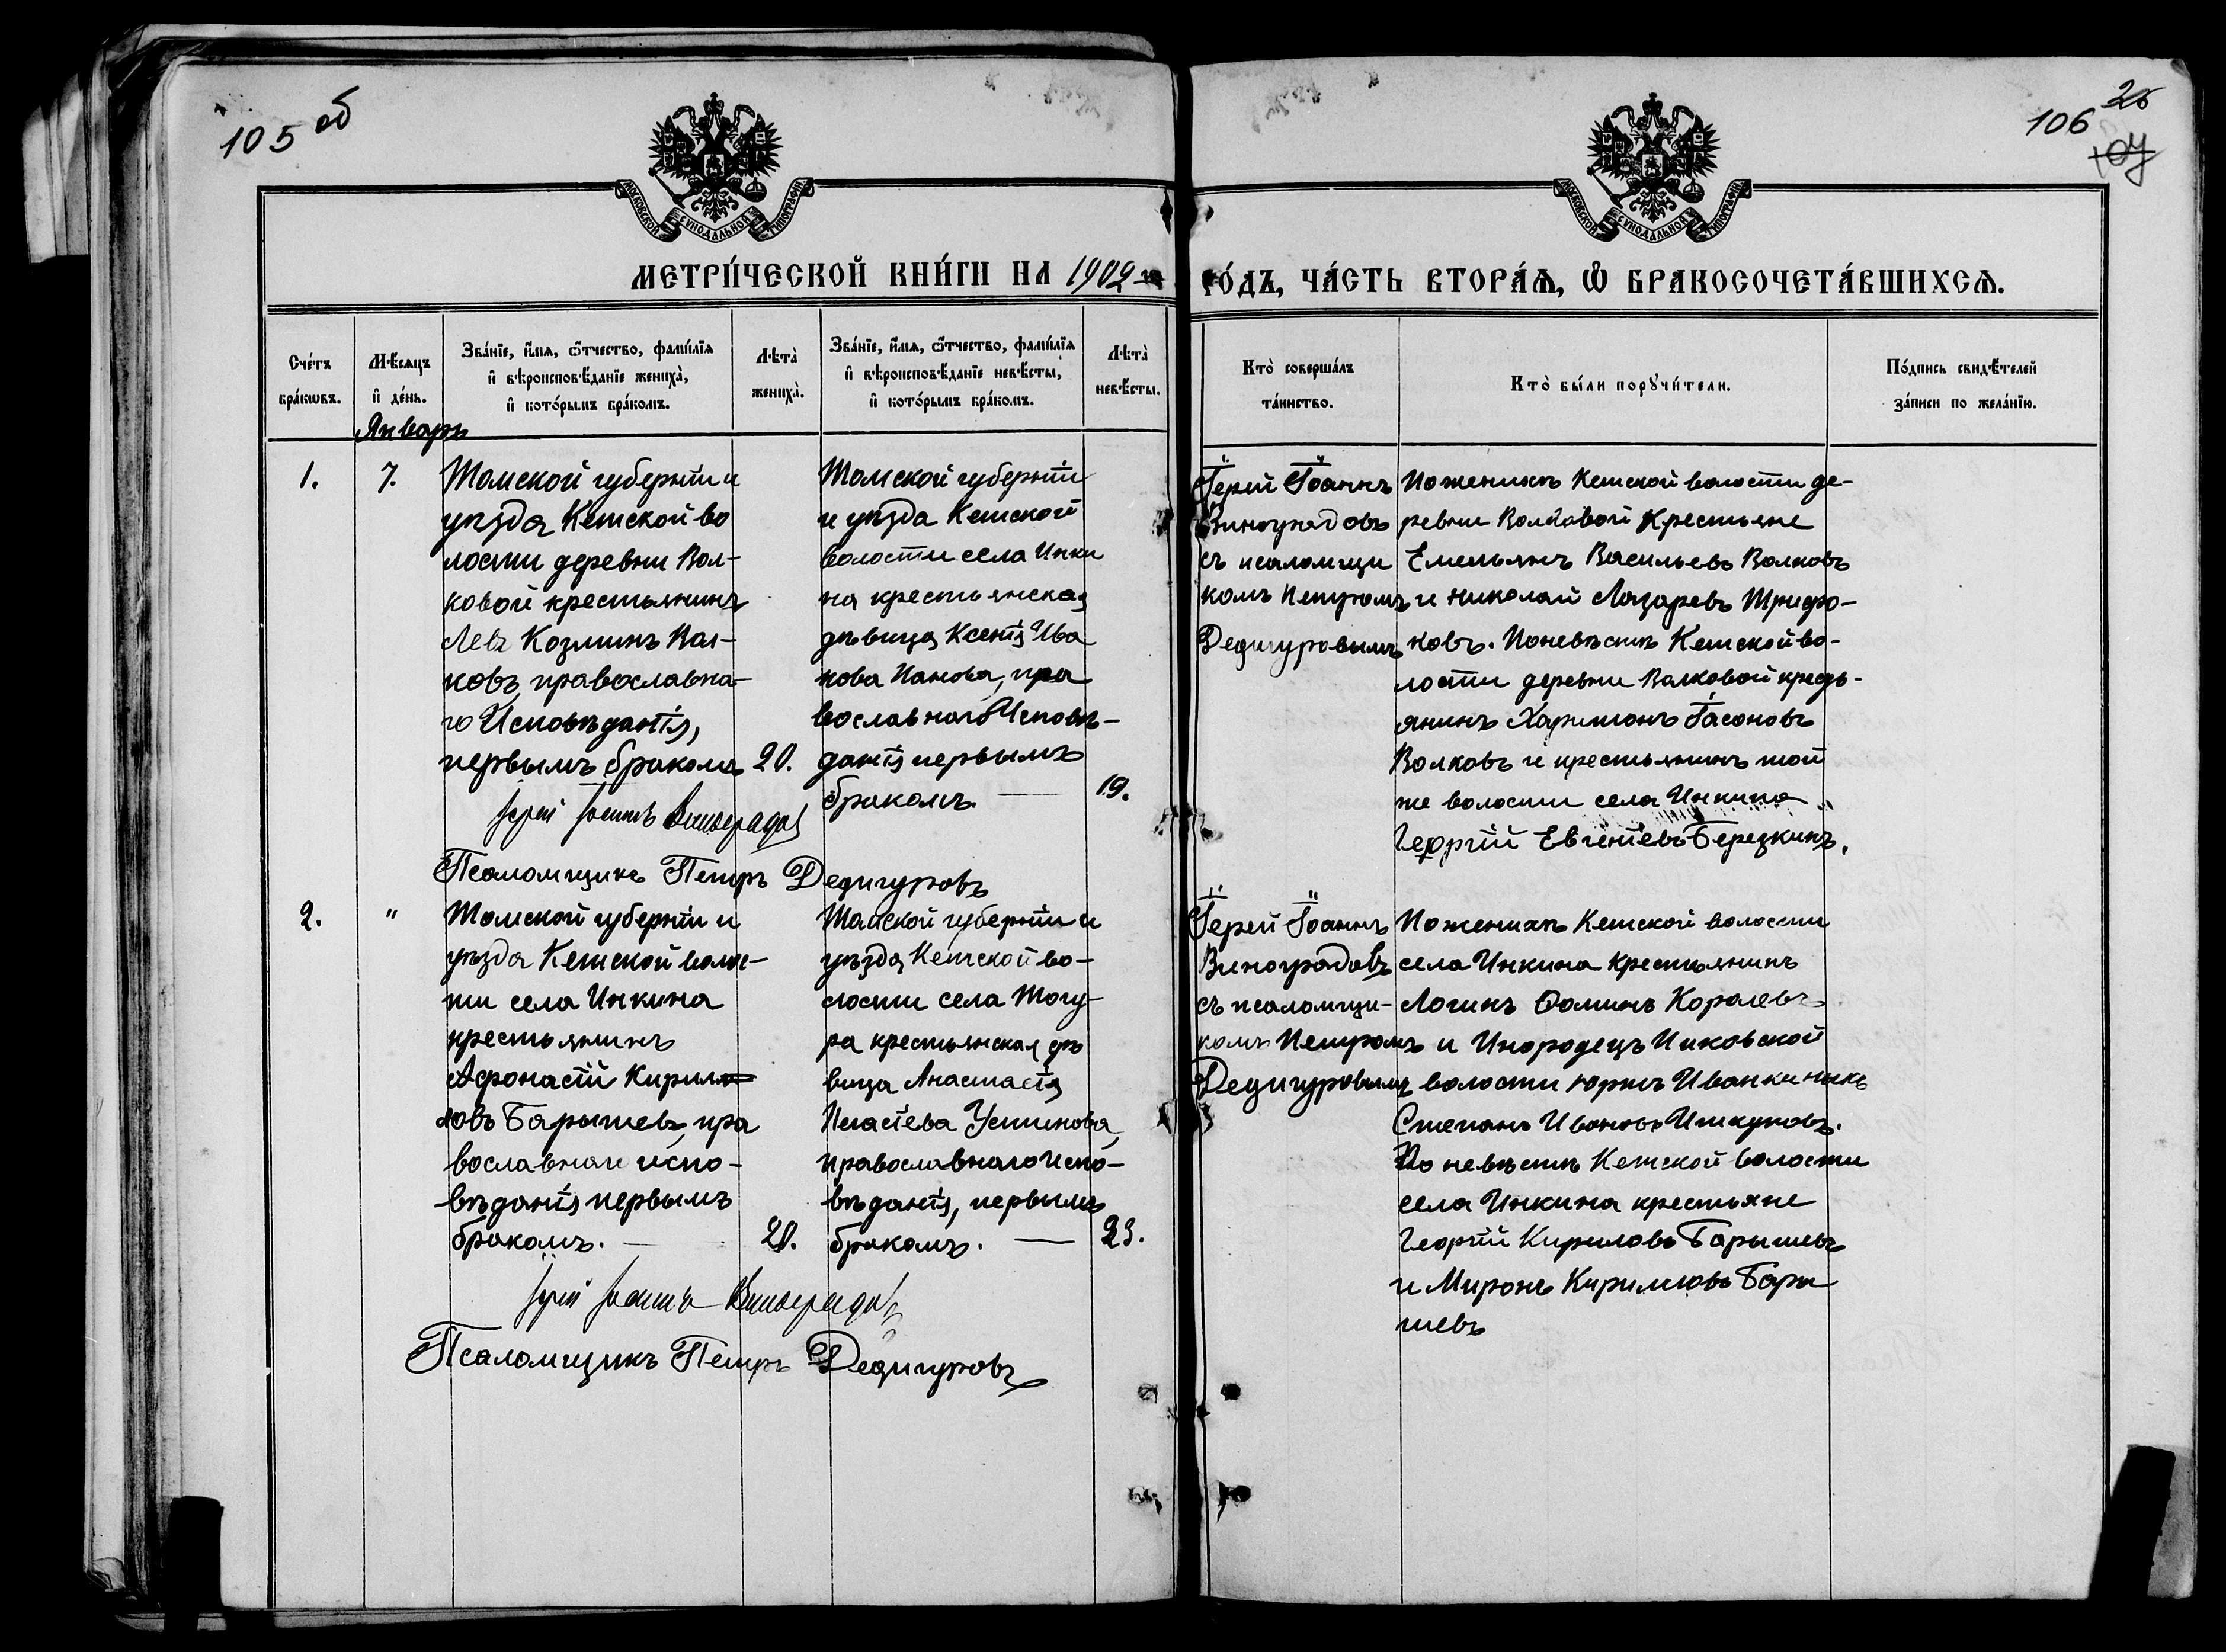 105 об
106
26
104
МОСКОВСКОЙ СУНОДАЛЬНОЙ ТИПОГРАФІИ.
МОСКОВСКОЙ СУНОДАЛЬНОЙ ТИПОГРАФІИ.
МЕТРИ́ЧЕСКОЙ КНИ́ГИ НА 1902 й
ГО́ДЪ, ЧА́СТЬ ВТОРА́Ѧ, Ѿ БРАКОСОЧЕТА́ВШИХСѦ.
Сче́тъ
бра́кѡвъ.
Мѣ́сяцъ
и҆ де́нь.
Зва́нїе, и҆́мя, ѻ҆́тчество, фами́лїя
и҆ вѣроисповѣ́данїе жениха̀,
и҆ кото́рымъ бра́комъ.
Лѣта̀
жениха̀.
Зва́нїе, и҆́мя, ѻ҆́тчество, фами́лїя
и҆ вѣроисповѣ́данїе невѣ́сты,
и҆ кото́рымъ бра́комъ.
Лѣта̀
невѣ́сты.
Кто̀ соверша́лъ
та́инство.
Кто̀ бы́ли порꙋчи́тели.
По́дпись свидѣ́телей
за́писи по жела́нїю.
Январь
1.
7.
Томской губерніи и
уѣзда Кетской во
лости деревни Вол-
ковой крестьянинъ
Левъ Козминъ Вол-
ковъ, православна-
го Исповѣданія,
первымъ бракомъ
20.
Томской губерніи
и уѣзда Кетской
волости села Инки
на крестьянская
дѣвица Ксенія Ива
нова Панова, пра
вославнаго Исповѣ-
данія первымъ
бракомъ. —
19.
Іерей Іоаннъ Виноградовъ
Псаломщикъ Петръ Дедигуровъ
Іерей Іоаннъ
Виноградовъ
съ псаломщи
комъ Петромъ
Дедигуровымъ
По женихѣ Кетской волости де-
ревни Волковой Крестьяне
Емельянъ Васильевъ Волковъ
и Николай Лазаревъ Трифо-
новъ. По невѣстѣ Кетской во-
лости деревни Волковой кресть-
янинъ Харитонъ Іасоновъ
Волковъ и крестьянинъ той
же волости села Инкина
Георгій Евгеніевъ Березкинъ.
2.
"
Томской губерніи и
уѣзда Кетской волос-
ти села Инкина
крестьянинъ
Афонасій Кирил
ловъ Барышевъ, пра
вославнаго испо-
вѣданія первымъ
бракомъ. —
20.
Томской губерніи и
уѣзда Кетской во-
лости села Тогу-
ра крестьянская дѣ
вица Анастасія
Игнатіева Устинова,
православнаго испо-
вѣданія, первымъ
бракомъ. —
23.
Іерей Іоаннъ Виноградовъ
Псаломщикъ Петръ Дедигуровъ
Іерей Іоаннъ
Виноградовъ
съ псаломщи-
комъ Петромъ
Дедигуровымъ
По женихѣ Кетской волости
села Инкина крестьянинъ
Логинъ Ѳоминъ Королевъ
и Инородецъ Пиковской
волости юртъ Иванкиныхъ
Степанъ Ивановъ Ишкуновъ.
По невѣстѣ Кетской волости
села Инкина крестьяне
Георгій Кириловъ Барышевъ
и Миронъ Кирилловъ Бары
шевъ